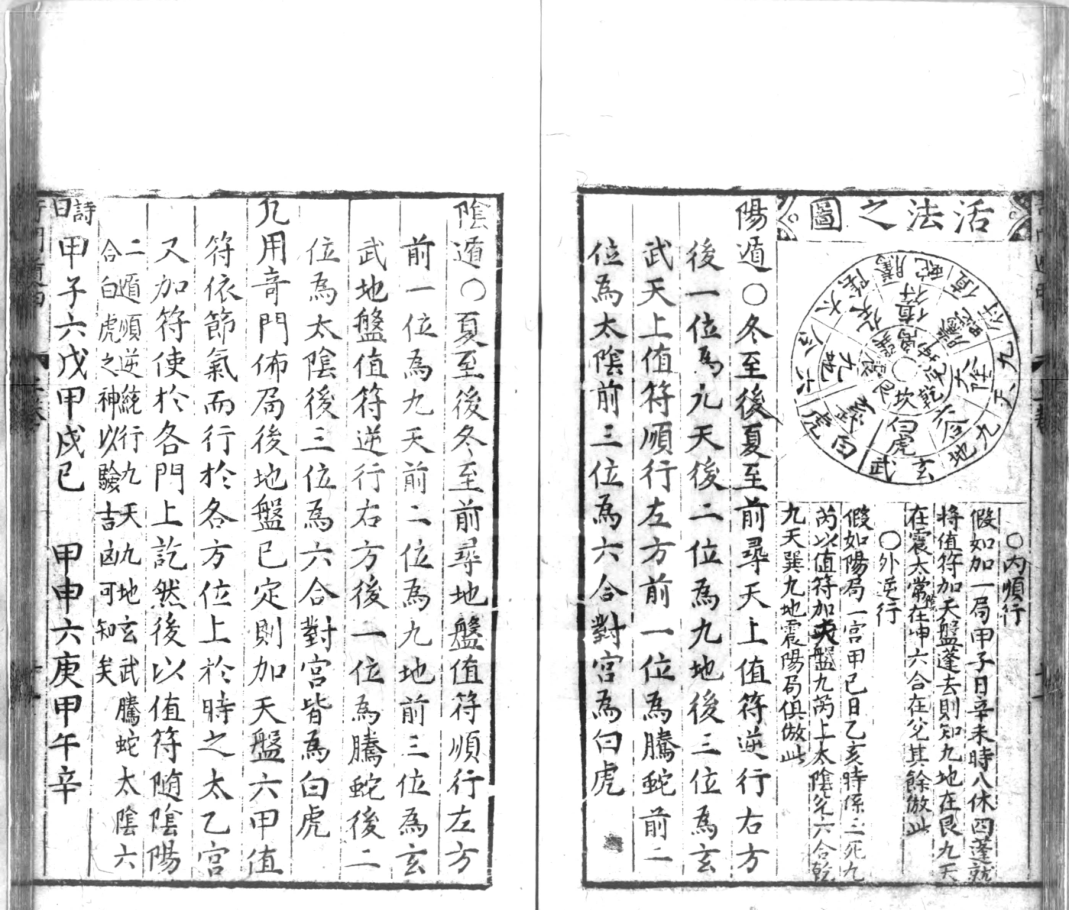 活法之圖
九天
九地
玄武
白虎
六合
太陰
騰蛇
值符
○內順行
假如加一局甲子日辛未時八休四蓬就
將值符加天盤蓬去則知九地在艮九天
在震太常在坤六合在兌其餘倣此
○外逆行
假如陽局一宮甲己日乙亥時係二死九
芮以值符加天盤九芮上太陰兌六合乾
九天巽九地震陽局俱倣此
陽遁○冬至後夏至前尋天上值符逆行右方
後一位為九天後二位為九地後三位為玄
武天上值符順行左方前一位為騰蛇前二
位為太陰前三位為六合對宮為白虎
陰遁○夏至後冬至前尋地盤值符順行左方
前一位為九天前二位為九地前三位為玄
武地盤值符逆行右方後一位為騰蛇後二
位為太陰後三位為六合對宮皆為白虎
凡用竒門佈局後地盤已定則加天盤六甲值
符依節氣而行於各方位上於時之太乙宮
又加符使於各門上訖然後以值符隨陰陽
二遁順逆統行九天九地玄武騰蛇太陰六
合白虎之神以驗吉凶可知矣
詩曰甲子六戊甲戌己 甲申六庚甲午辛